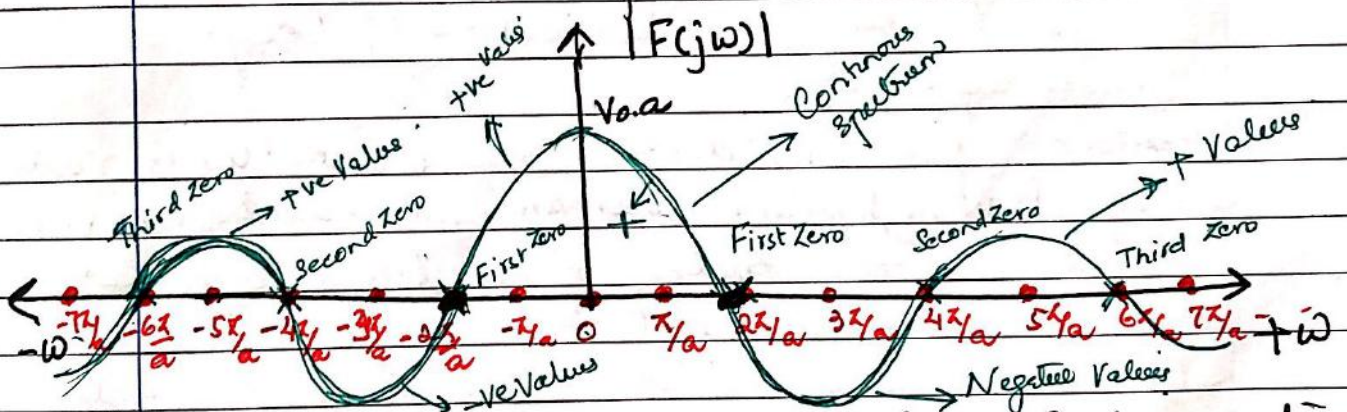 |F(jω)|
+ve Valus
V₀.a
Continous
spectrum
+ Values
Third zero
+ve Values
second zero
First Zero
+
First Zero
Second Zero
Third Zero
-7π/a -6π/a -5π/a -4π/a -3π/a -2π/a -π/a 0 π/a 2π/a 3π/a 4π/a 5π/a 6π/a 7π/a
-ω +ω
-ve Values
Negative Values